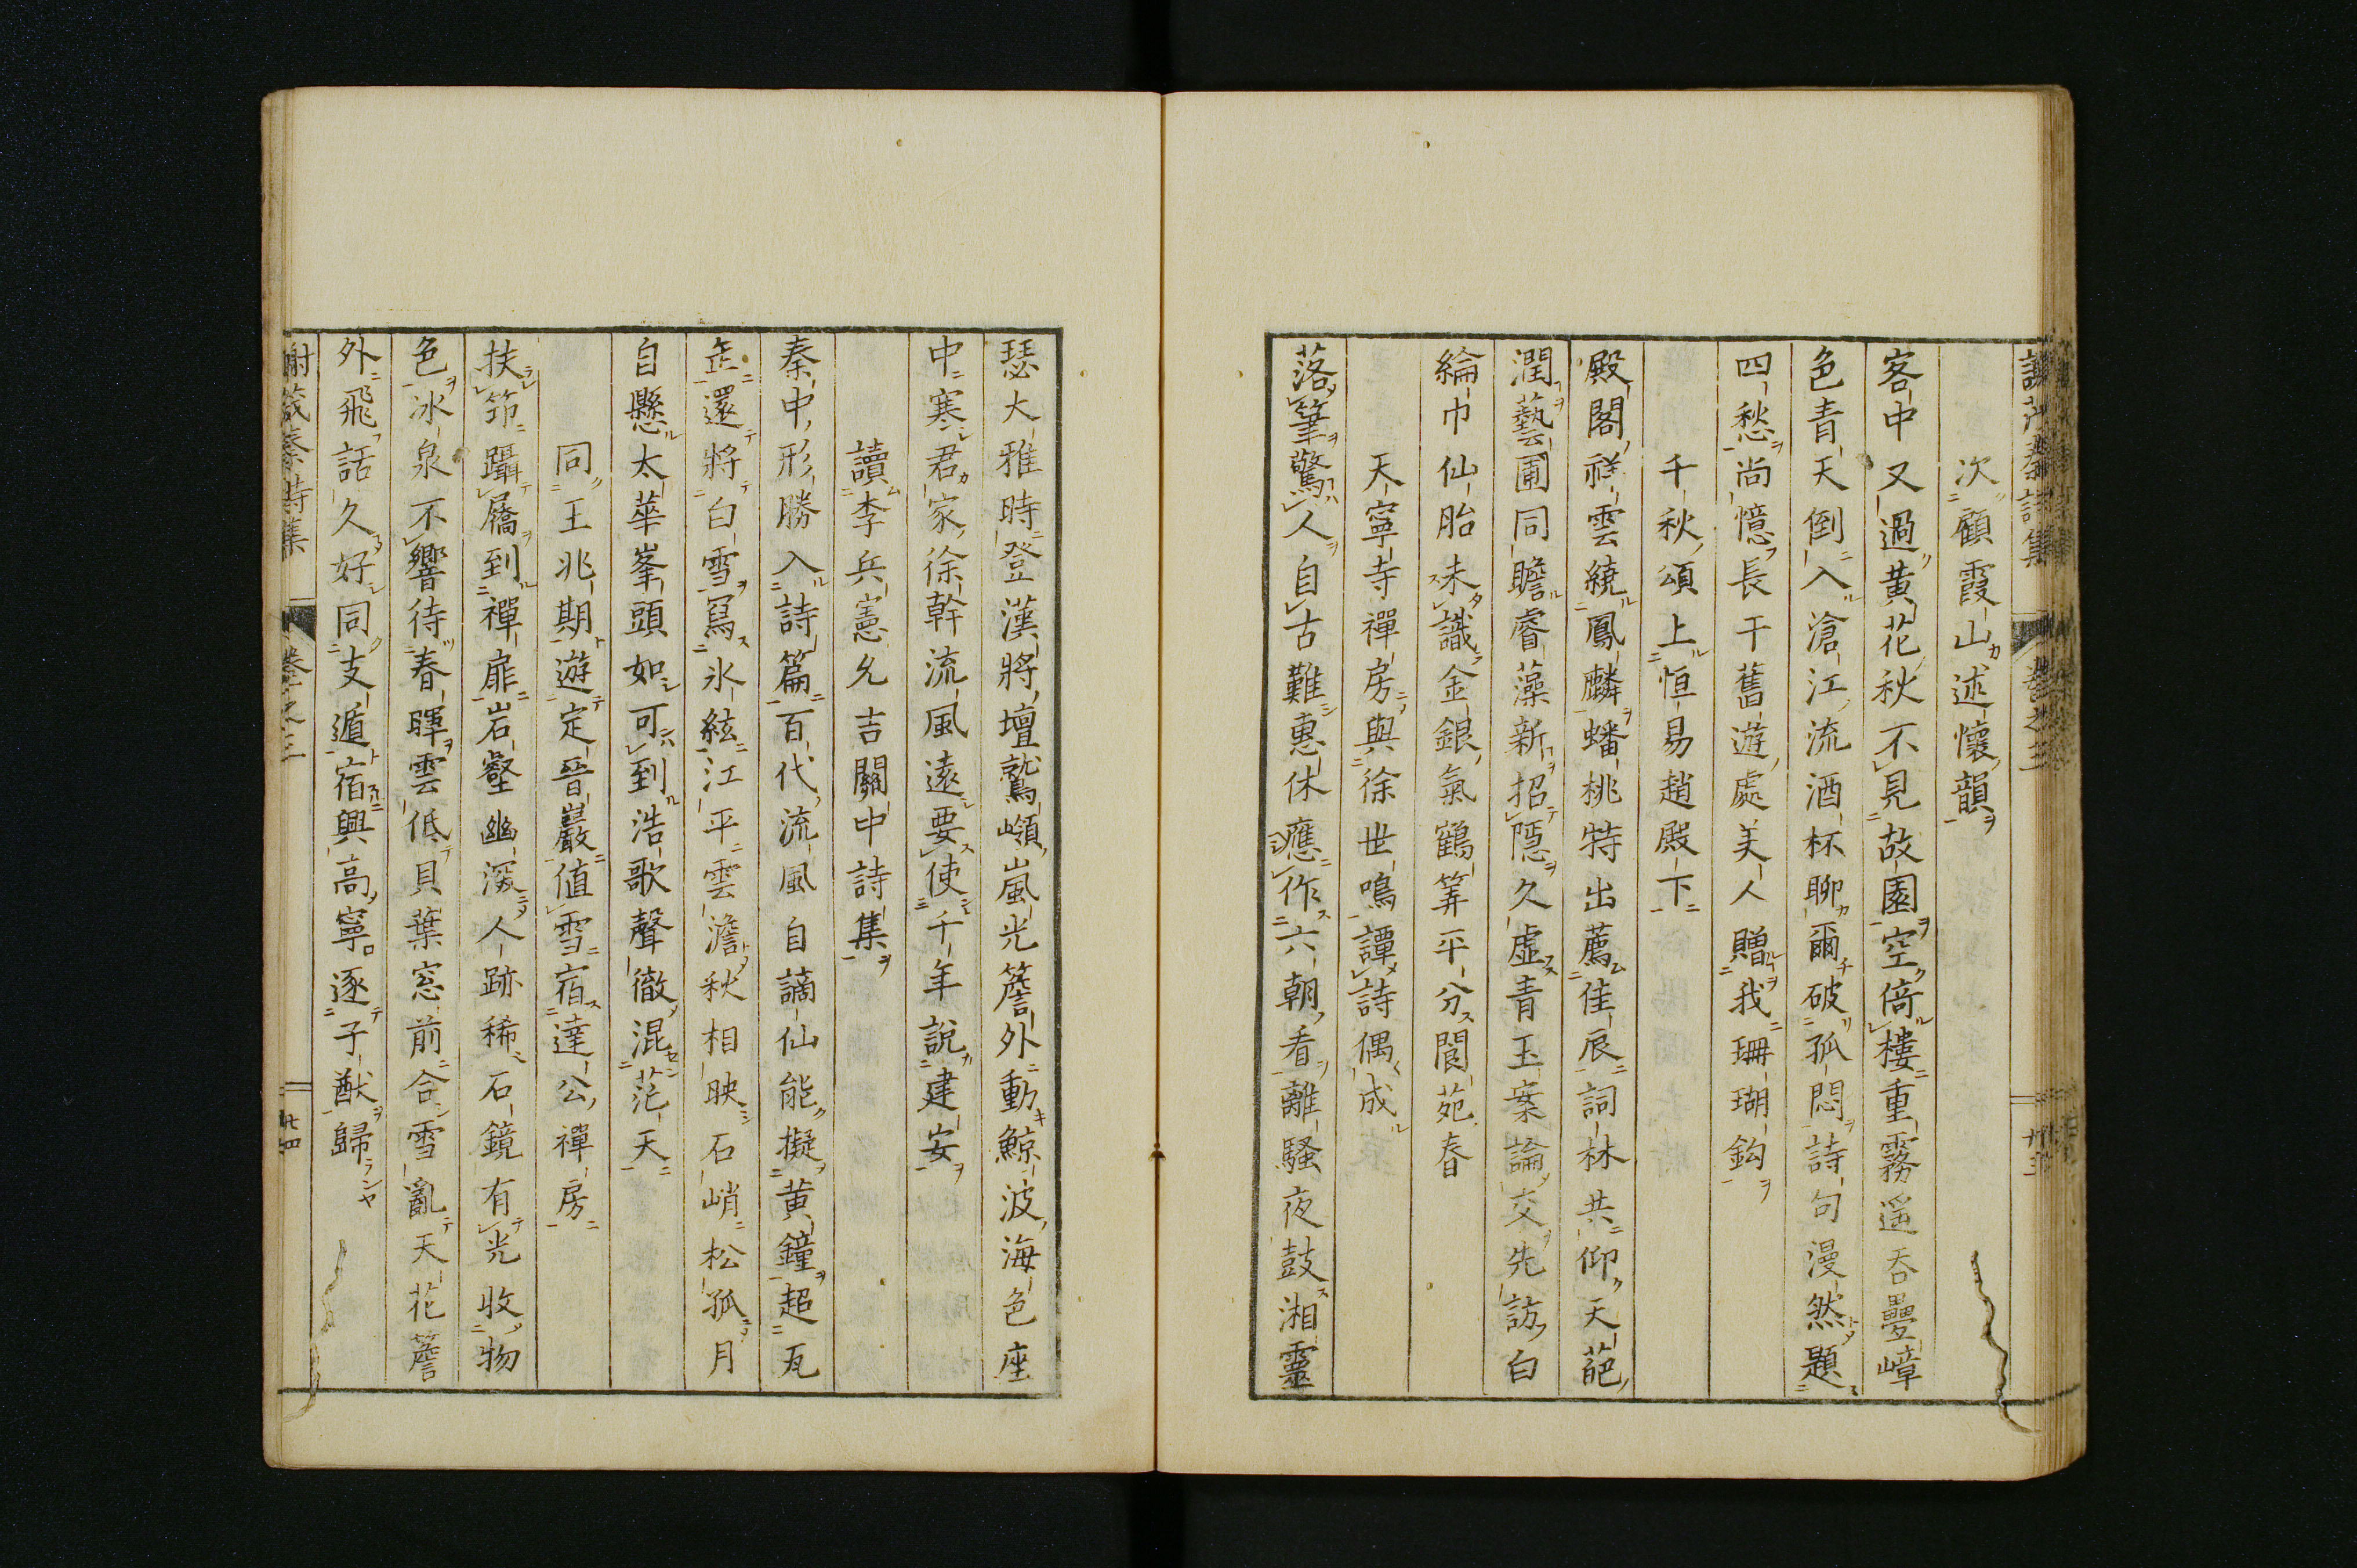 次顧霞山述懷韻
客中又過黃花秋不見故園空倚樓重霧遥吞疊嶂
色青天倒入滄江流酒杯聊爾破孤悶詩句漫然題
四愁尚憶長干舊遊處美人贈我珊瑚鈎
千秋頌上恒易趙殿下
殿閣祥雲繞鳳麟蟠桃特出薦佳辰詞林共仰天葩
潤藝圃同瞻睿藻新招隱久虛青玉案論交先訪白
綸巾仙胎未識金銀氣鶴筭平分閬苑春
天寧寺禪房與徐世鳴譚詩偶成
落筆驚人自古難惠休應作六朝看離騷夜鼓湘靈
瑟大雅時登漢將壇鷲嶺嵐光簷外動鯨波海色座
中寒君家徐幹流風遠要使千年說建安
讀李兵憲允吉關中詩集
秦中形勝入詩篇百代流風自謫仙能擬黃鐘超瓦
缶還將白雪寫氷絃江平雲澹秋相映石峭松孤月
自懸太華峯頭如可到浩歌聲徹混茫天
同王兆期遊定晉巖值雪宿達公禪房
扶筇躡屩到禪扉岩壑幽深人跡稀石鏡有光收物
色冰泉不響待春暉雲低貝葉窓前合雪亂天花簷
外飛話久好同支遁宿興高寧逐子猷歸
謝茂秦詩集
卷之三
廿四